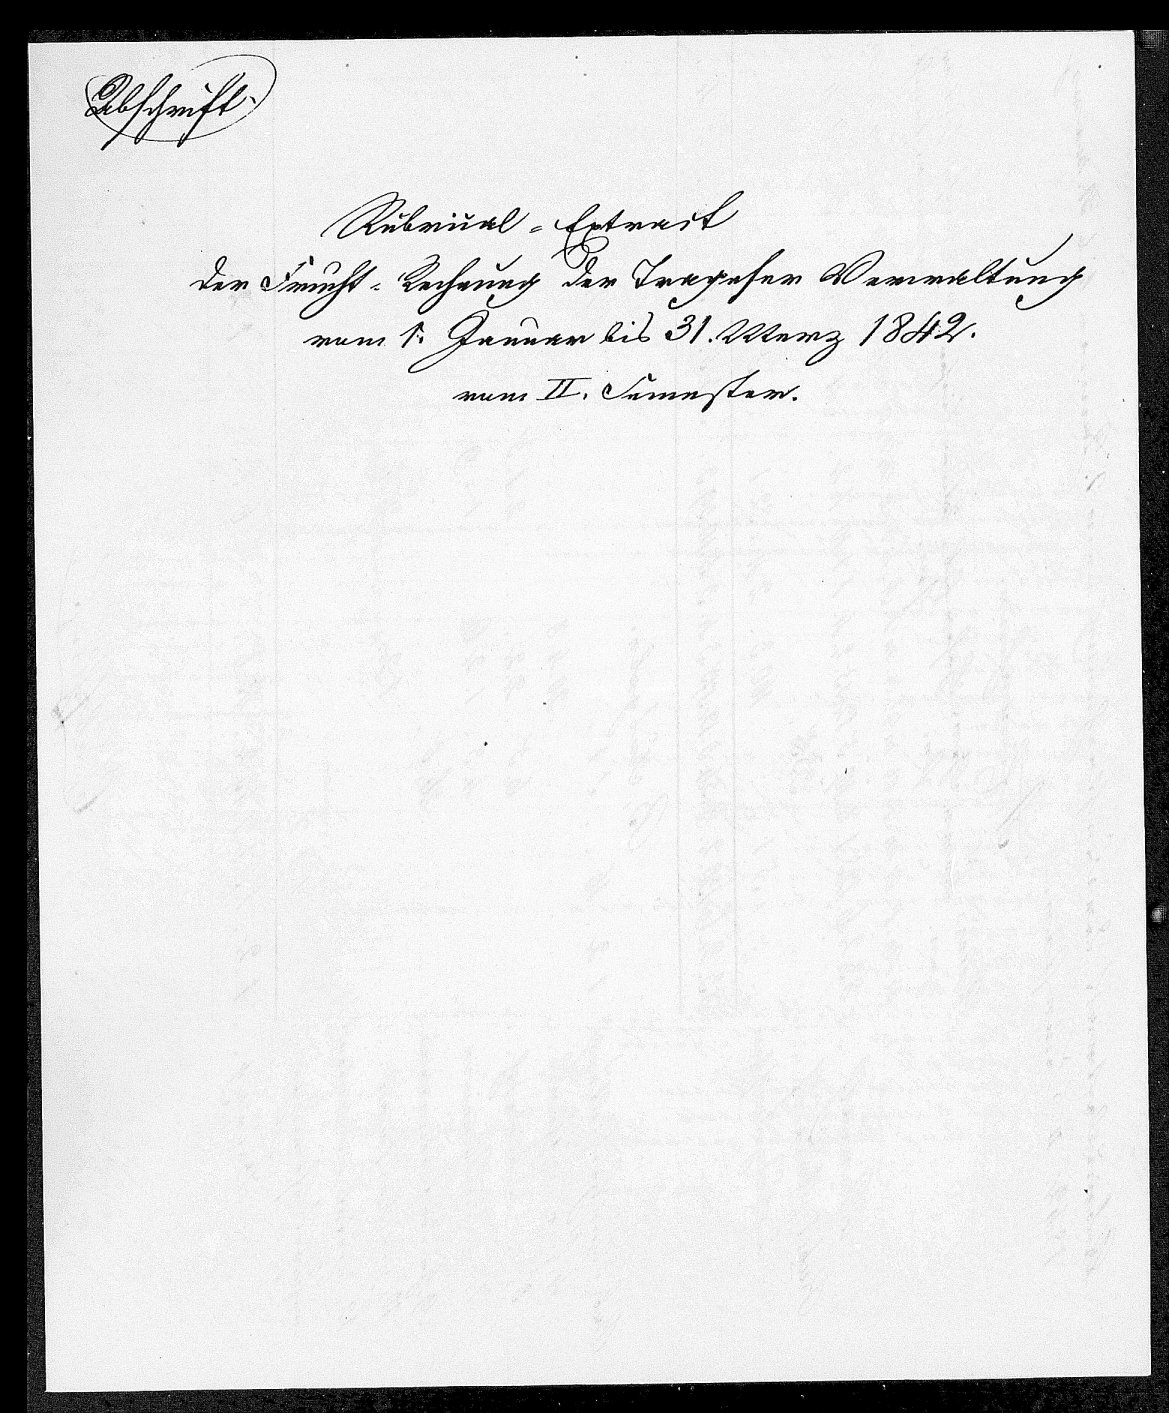 Abschrift.
Rubrical-Extract
der Frucht-Rechnung der Trageser Verwaltung
vom 1. Januar bis 31. Merz 1842.
vom II. Semester.